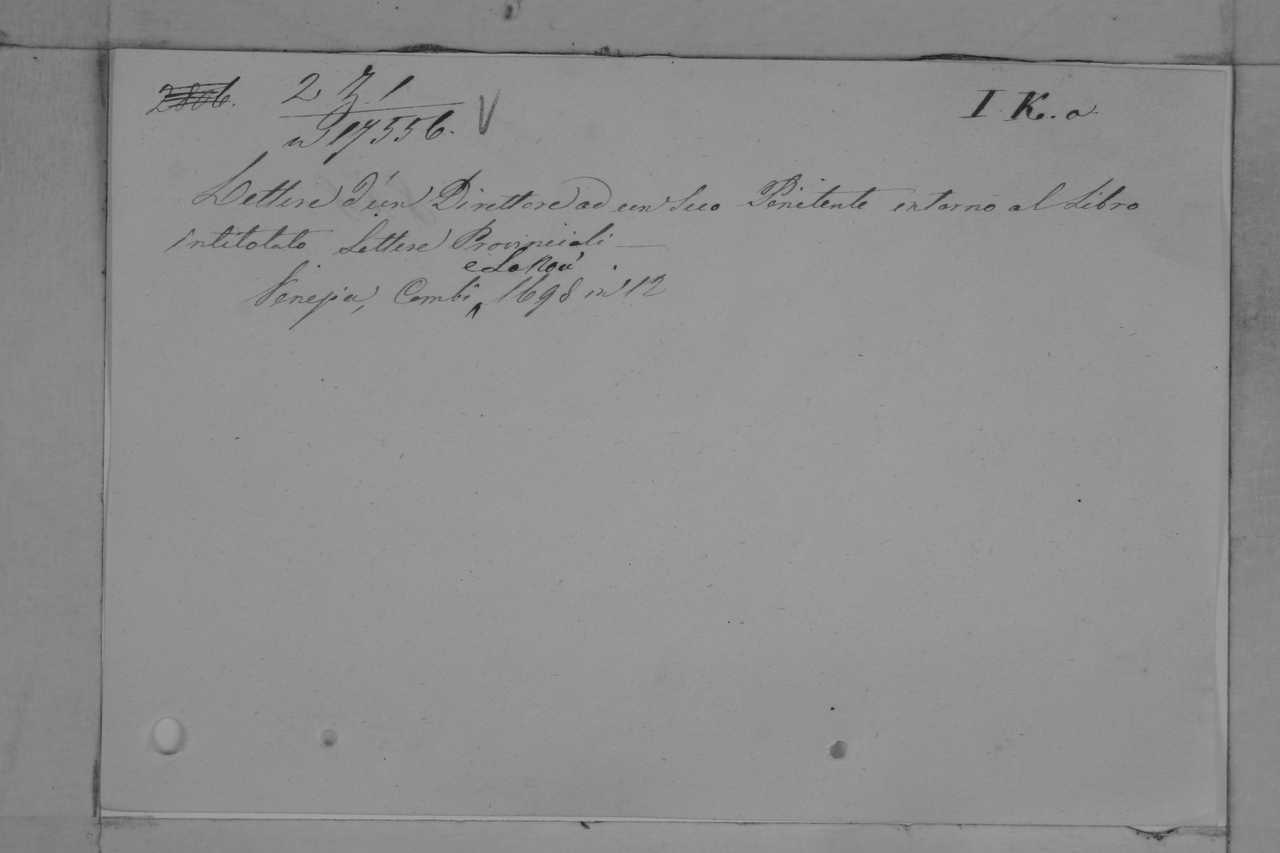 2806. 2 Z. 1 V I K. a
n 17556.
Lettere d'un Direttore ad un Suo Penitente intorno al Libro
intitolato Lettere Provinciali —
e La Nou'
Venezia, Combi 1698 in 12